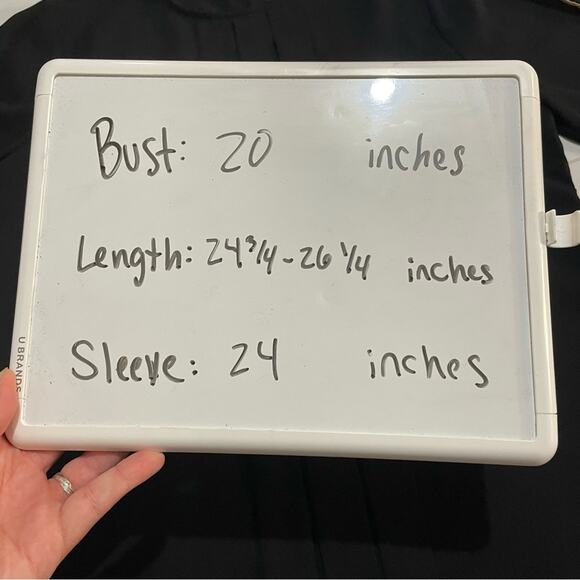 Bust: 20 inches
Length: 24 3/4 - 26 1/4 inches
Sleeve: 24 inches
U BRANDS